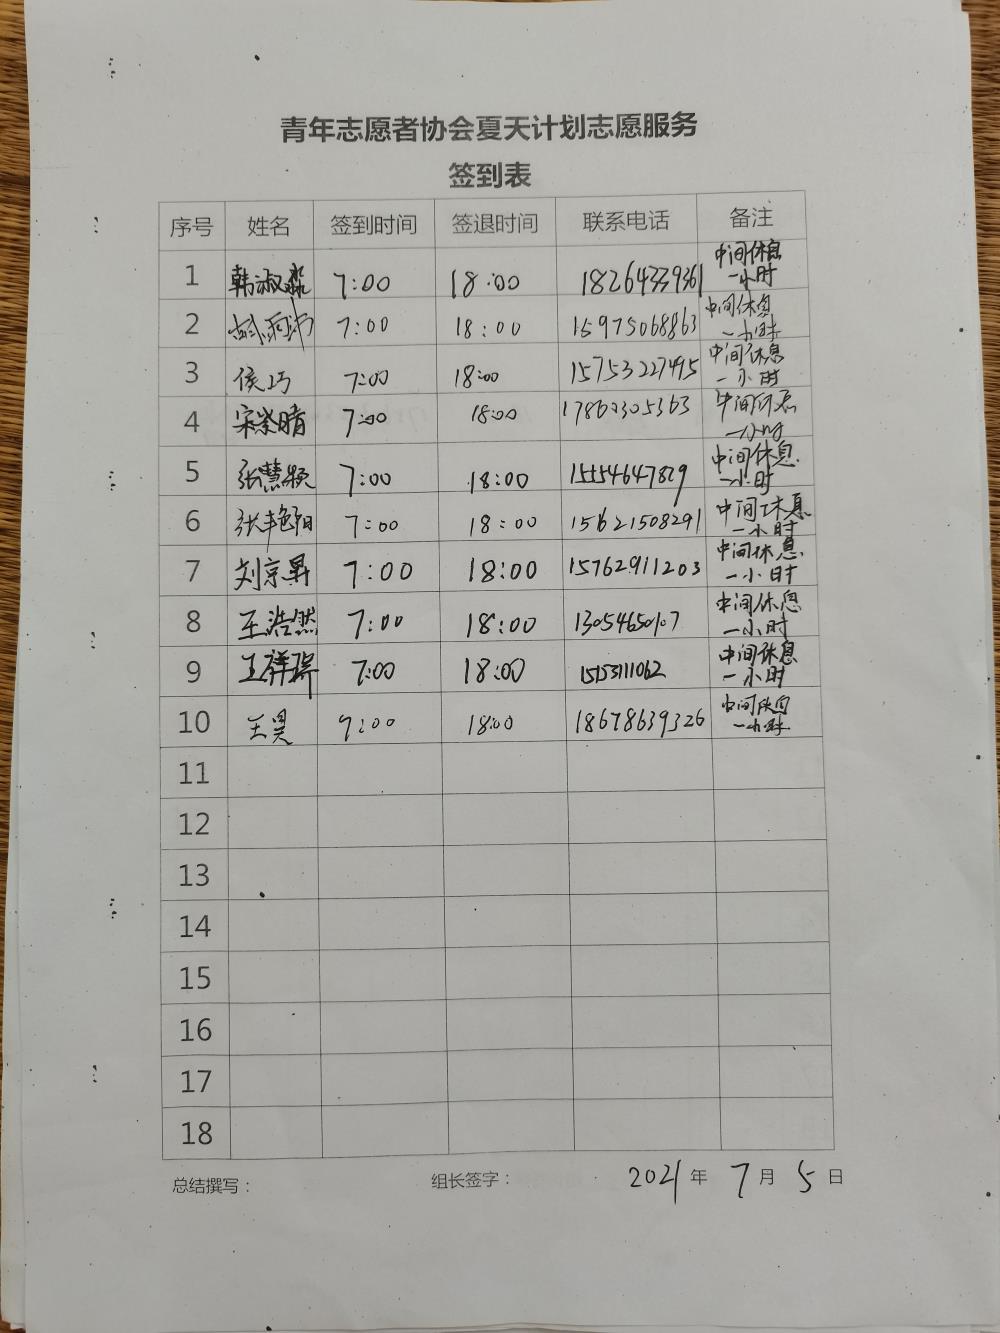 青年志愿者协会夏天计划志愿服务
签到表
序号 姓名 签到时间 签退时间 联系电话 备注
1 韩淑淼 7:00 18:00 18264339361 中间休息一小时
2 7:00 18:00 15975068863 中间休息一小时
3 侯巧 7:00 18:00 15753227495 中间休息一小时
4 宋紫晴 7:00 18:00 17860305363 中间休息一小时
5 张慧颖 7:00 18:00 15554647829 中间休息一小时
6 张艳阳 7:00 18:00 15621508291 中间休息一小时
7 刘京昇 7:00 18:00 15762911203 中间休息一小时
8 王浩然 7:00 18:00 中间休息一小时
9 王祥瑞 7:00 18:00 中间休息一小时
10 王昊 9:00 18:00 18678639326 中间休息一小时
11
12
13
14
15
16
17
18
总结撰写： 组长签字： 2021 年 7 月 5 日